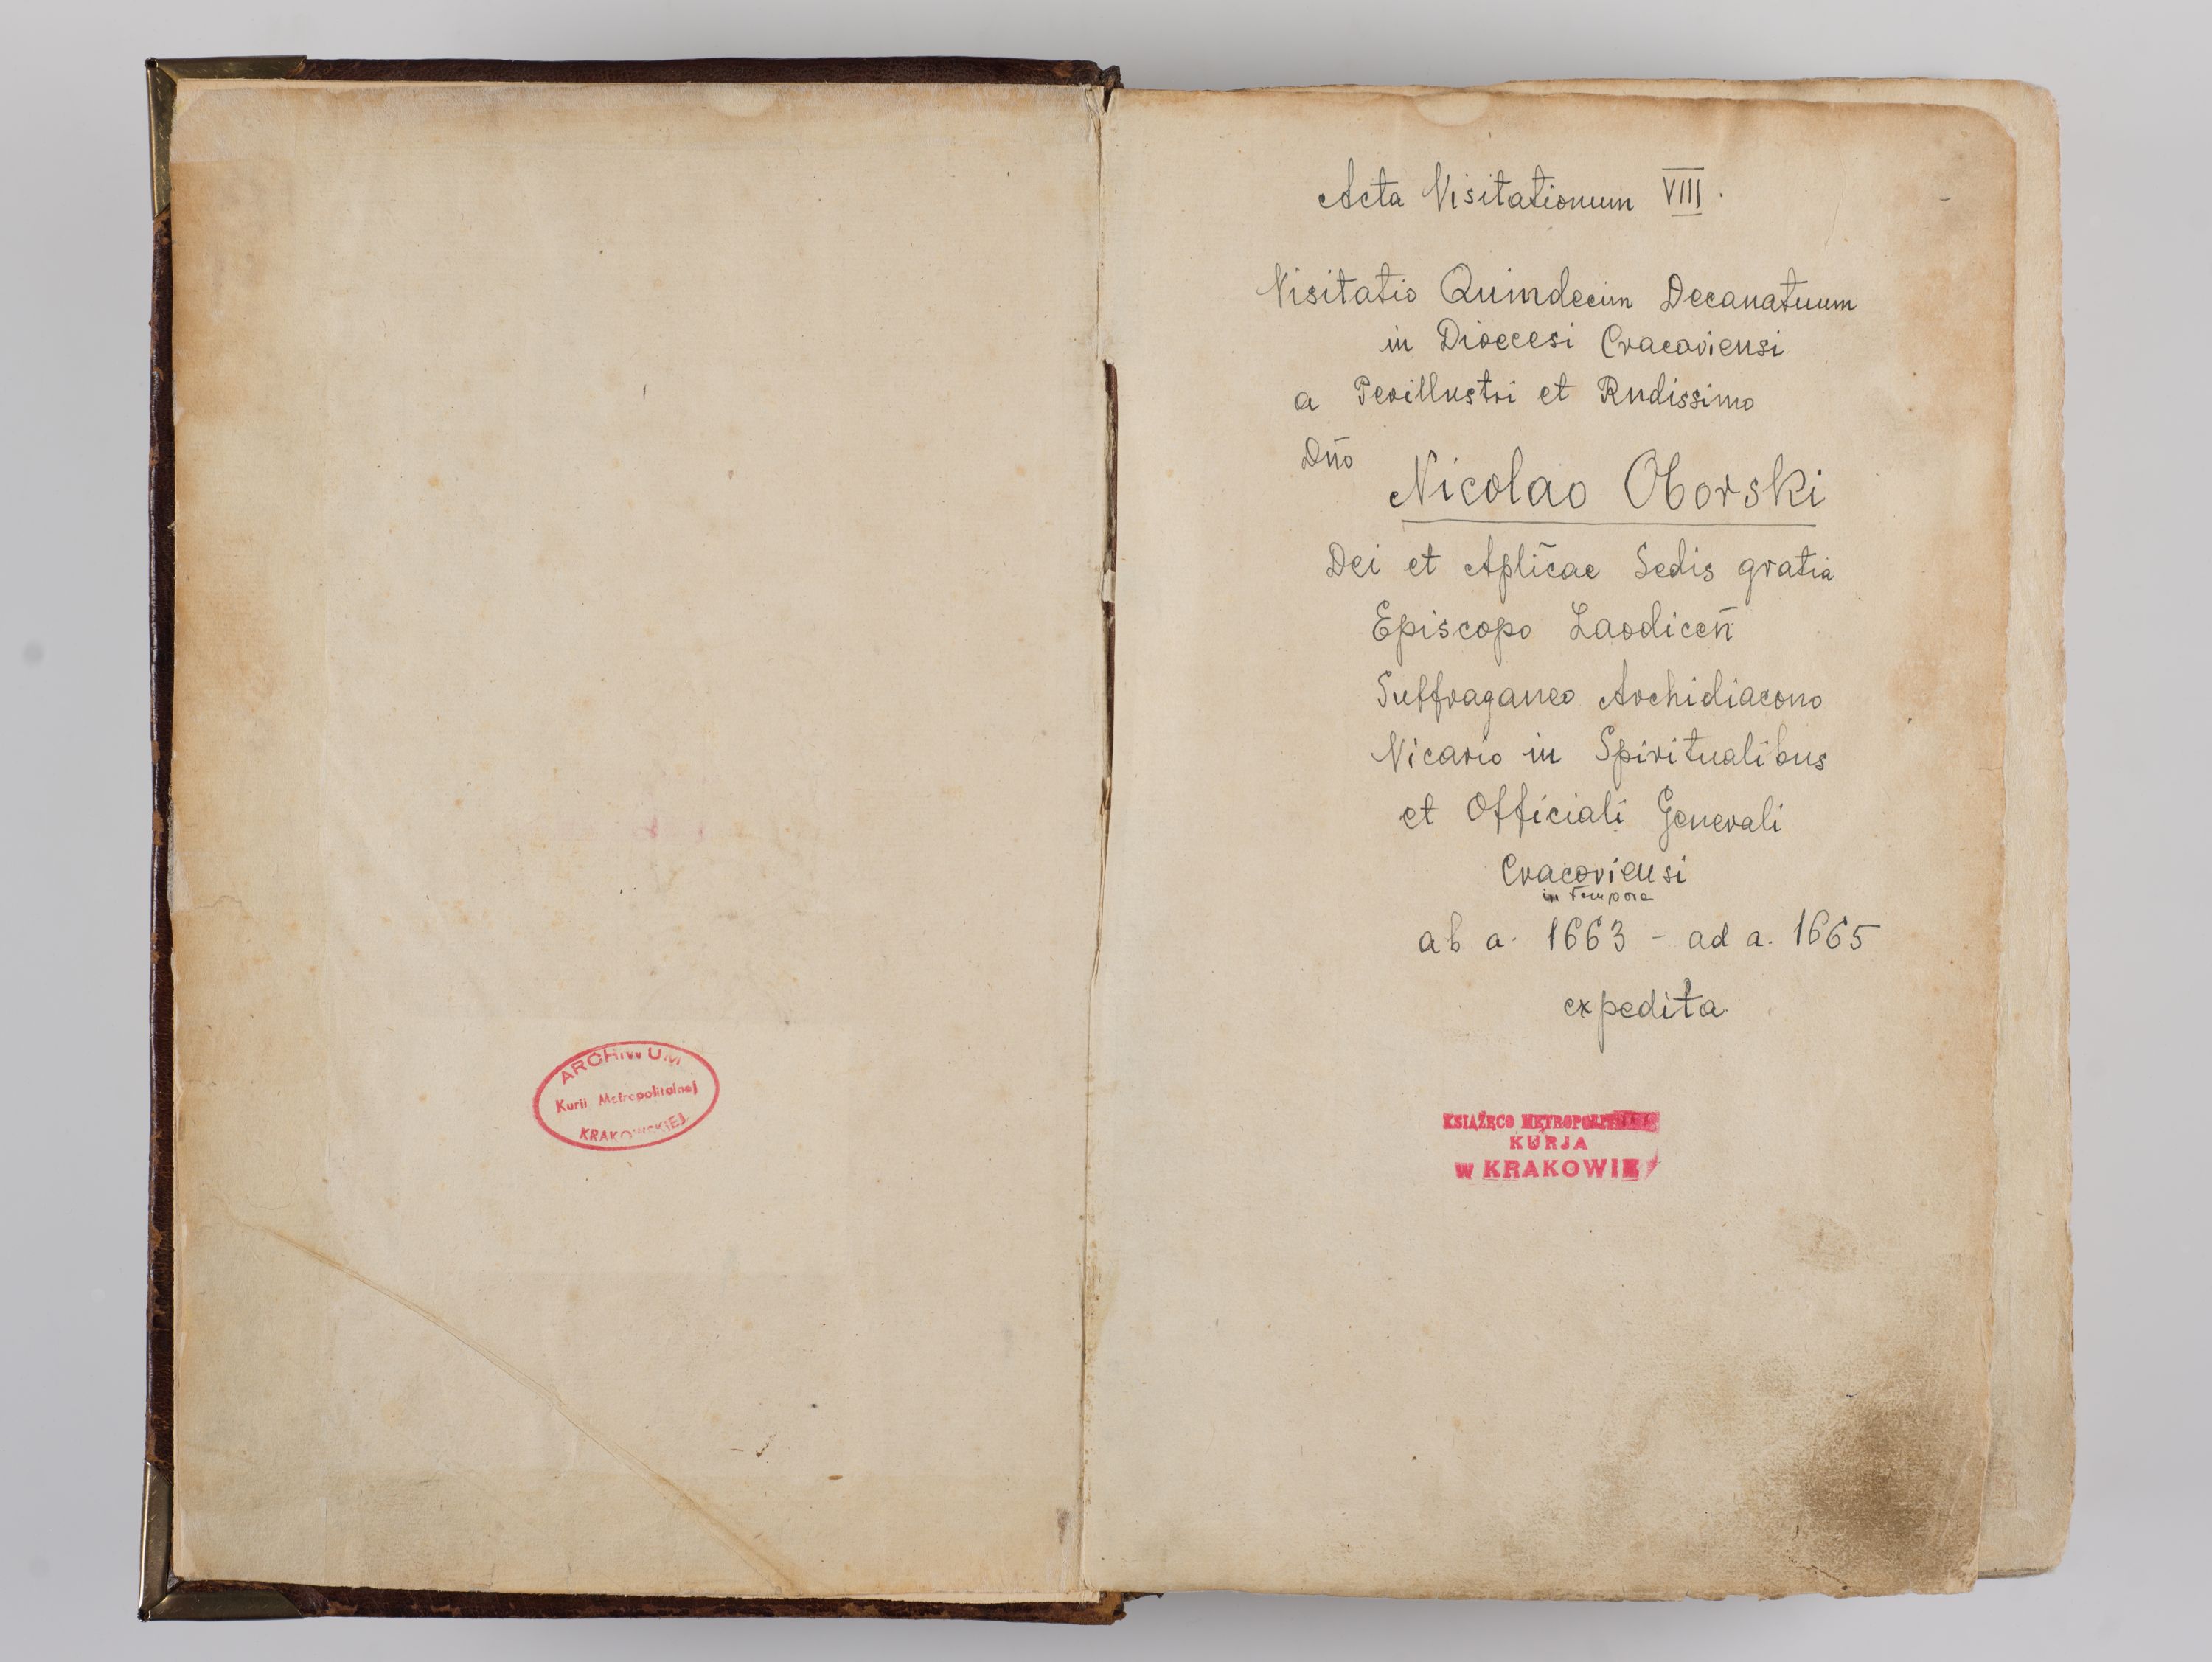 ARCHIWUM
Kurii Metropolitalnej
KRAKOWSKIEJ
Acta Visitationum VIII.
Visitatio Quindecim Decanatuum
in Dioecesi Cracoviensi
a Perillustri et Rndissimo
Dño
Nicolao Oborski
Dei et Aplic̃ae Sedis gratia
Episcopo Laodicen̄
Suffraganeo Archidiacono
Vicario in Spiritualibus
et Officiali Generali
Cracoviensi
in tempore
ab a. 1663 - ad a. 1665
expedita
KSIĄŻĘCO
KURJA
W KRAKOWIE